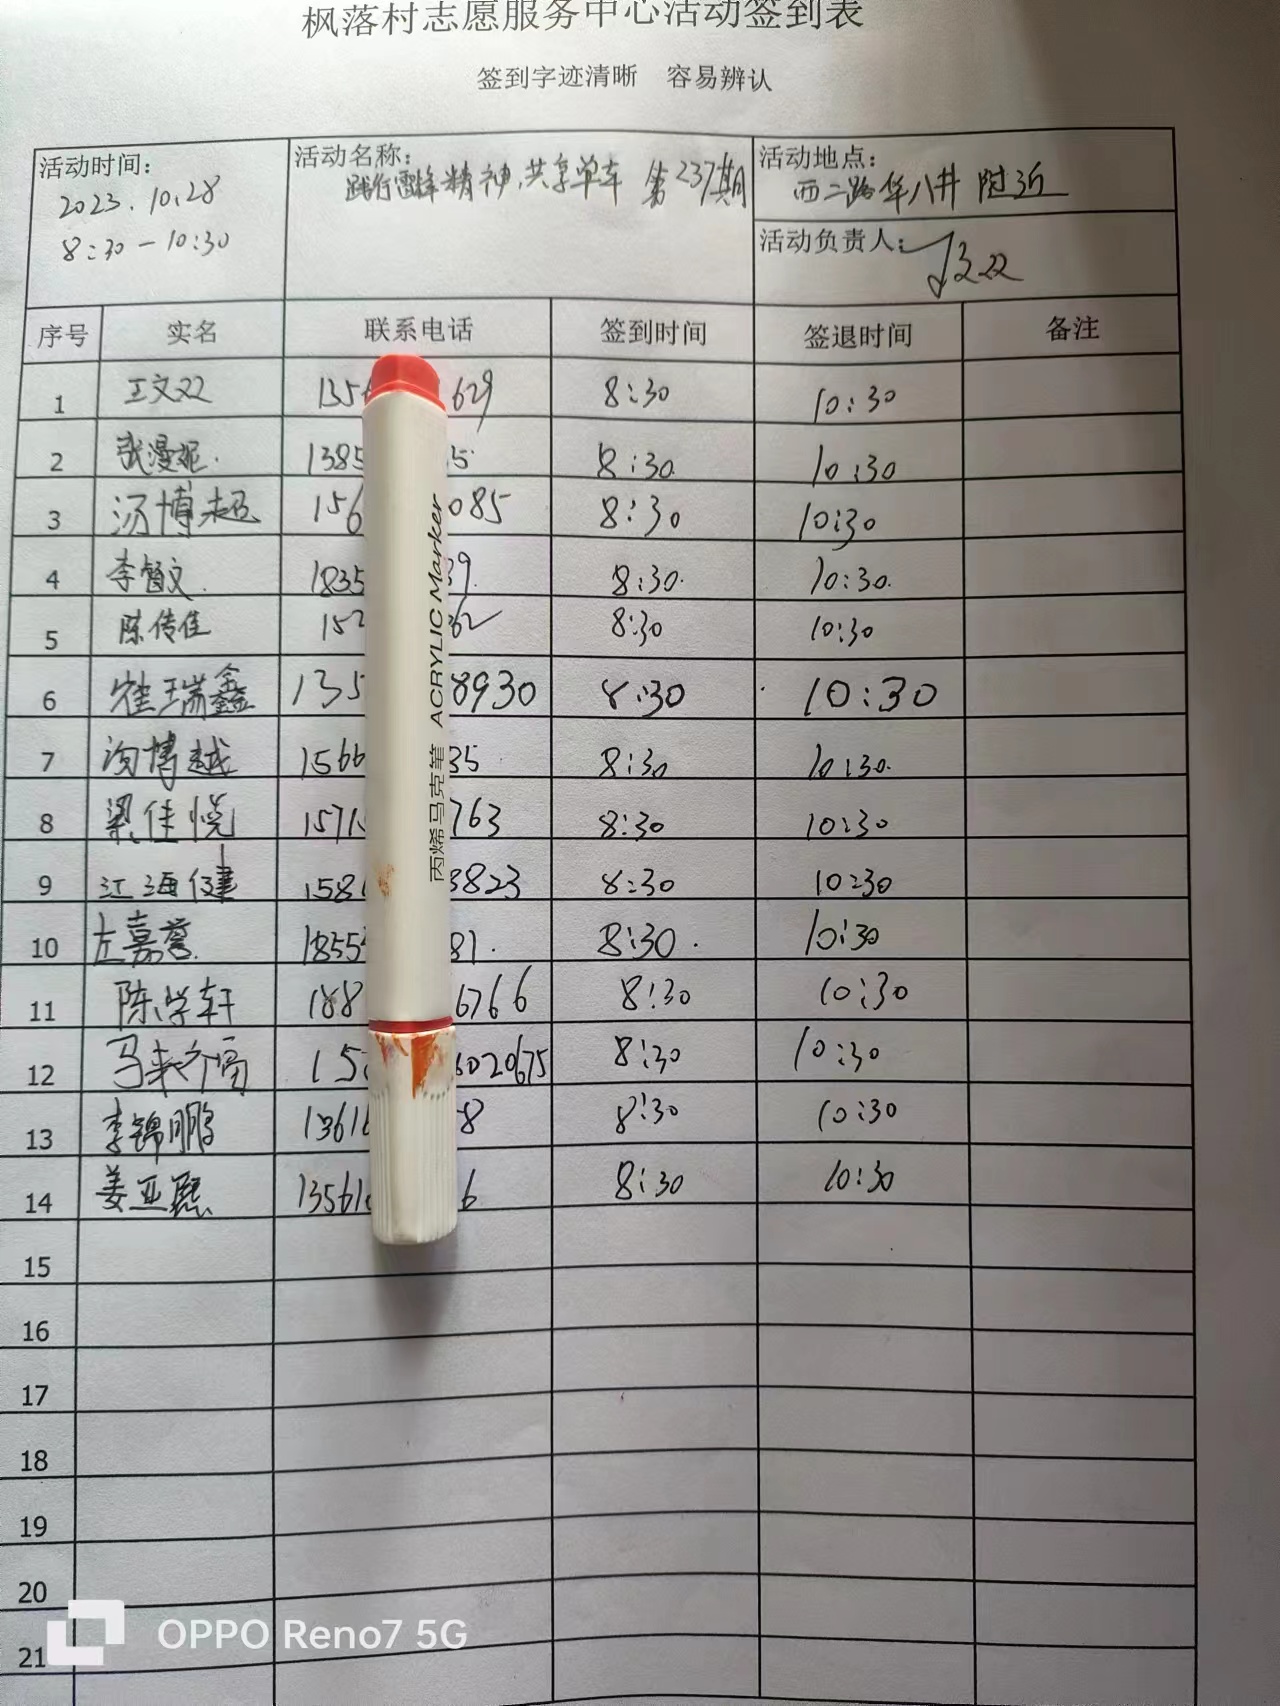 枫落村志愿服务中心活动签到表
签到字迹清晰 容易辨认
活动时间：
2023.10.28
8:30-10:30
活动名称：
践行雷锋精神,共享单车 第237期
活动地点：
西二路华八井 附近
活动负责人：
序号 实名 联系电话 签到时间 签退时间 备注
1 王文双 135 629 8:30 10:30
2 张漫妮. 1385 5. 8:30 10:30
3 汤博超 156 085 8:30 10:30
4 李文 1835 39. 8:30. 10:30.
5 陈传佳 152 62 8:30 10:30
6 崔瑞鑫 135 8930 8:30 10:30
7 博越 1566 35 8:30 10:30.
8 梁佳悦 1571 763 8:30 10:30
9 江海健 158 3823 8:30 10:30
10 左嘉誉. 1855 81. 8:30. 10:30
11 陈学轩 188 6766 8:30 10:30
12 马 15 6020675 8:30 10:30
13 李锦鹏 1361 8 8:30 10:30
14 姜亚熙 13561 6 8:30 10:30
15
16
17
18
19
20
21
丙烯马克笔 ACRYLIC Marker
OPPO Reno7 5G